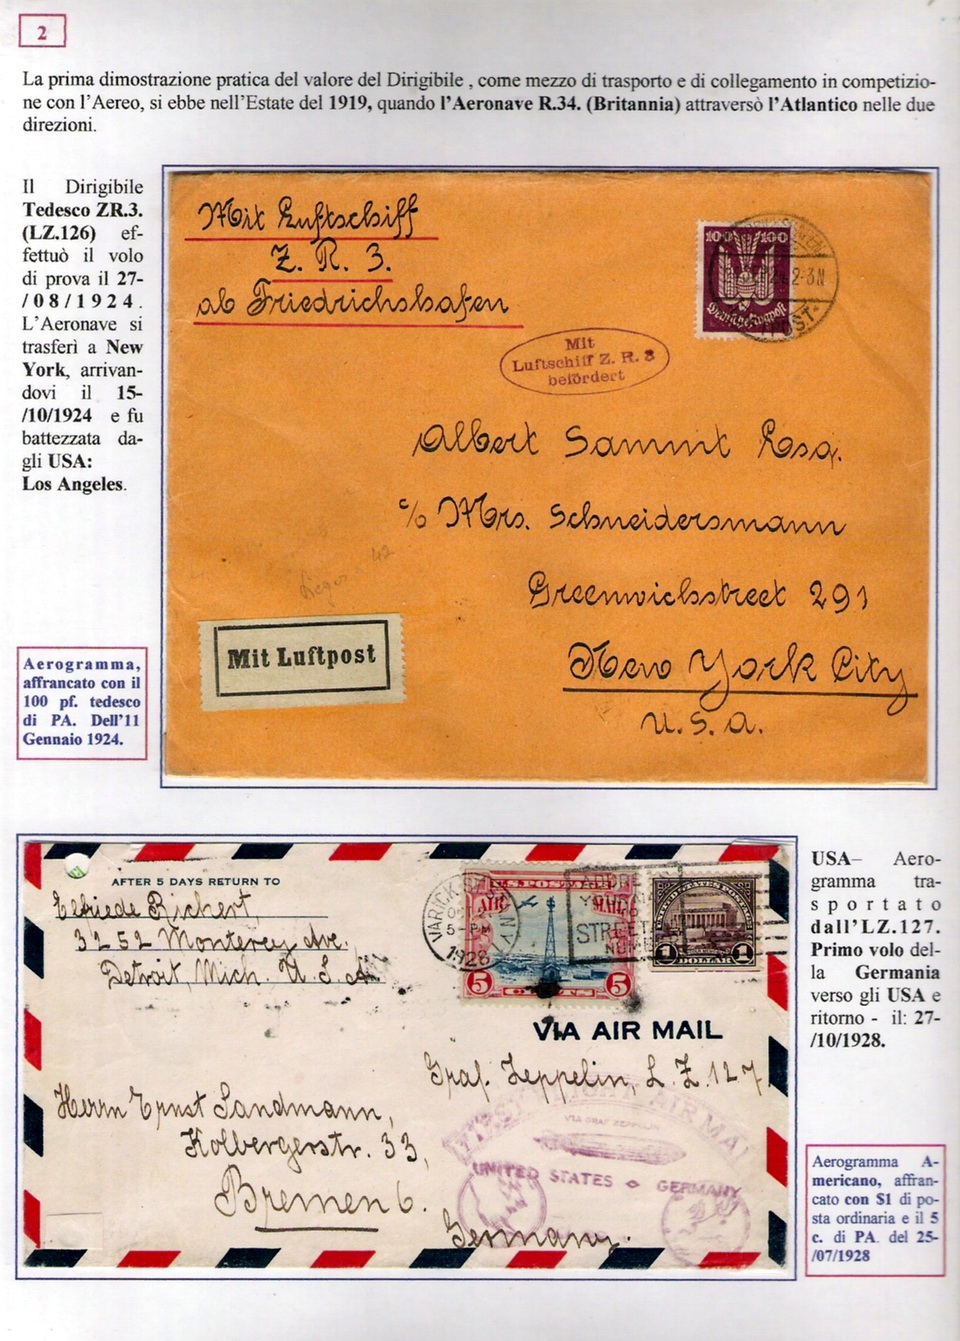 2
La prima dimostrazione pratica del valore del Dirigibile , come mezzo di trasporto e di collegamento in competizio-
ne con l'Aereo, si ebbe nell'Estate del 1919, quando l'Aeronave R.34. (Britannia) attraversò l'Atlantico nelle due
direzioni.
Il Dirigibile
Tedesco ZR.3.
(LZ.126) ef-
fettuò il volo
di prova il 27-
/08/1924.
L'Aeronave si
trasferì a New
York, arrivan-
dovi il 15-
/10/1924 e fu
battezzata da-
gli USA:
Los Angeles.
Mit Luftschiff
Z. R. 3.
ab Friedrichshafen
100 100
Deutsche Flugpost
2-3N
POST
Mit
Luftschiff Z. R. 3
befördert
Albert Sammt Esq.
c/o Mrs. Schneidersmann
Greenwichstreet 291
New York City
U. S. A.
42
Mit Luftpost
Aerogramma,
affrancato con il
100 pf. tedesco
di PA. Dell'11
Gennaio 1924.
AFTER 5 DAYS RETURN TO
Elfriede Rickert,
3252 Monterey Ave.
Detroit, Mich. U. S. A.
VARICK
OCT
5-PM
1928
U.S. POSTAGE
AIR MAIL
5 CENTS 5
ADDRE
YOUR MAIL
TO
STREET A
NUMBE
UNITED STATES POSTAGE
1 DOLLAR 1
VIA AIR MAIL
Graf. Zeppelin, L. Z. 127
Herrn Ernst Sandmann,
Kolbergerstr. 33,
Bremen 6.
Germany.
FIRST FLIGHT AIR MAIL
VIA GRAF ZEPPELIN
UNITED STATES GERMANY
USA– Aero-
gramma tra-
sportato
dall'LZ.127.
Primo volo del-
la Germania
verso gli USA e
ritorno - il: 27-
/10/1928.
Aerogramma A-
mericano, affran-
cato con $1 di po-
sta ordinaria e il 5
c. di PA. del 25-
/07/1928